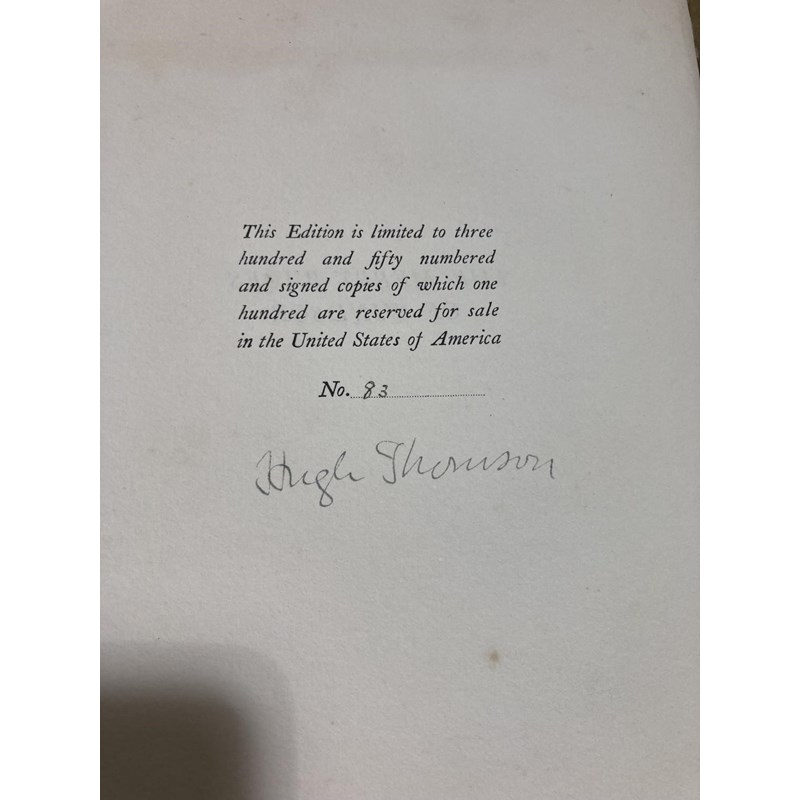 This Edition is limited to three
hundred and fifty numbered
and signed copies of which one
hundred are reserved for sale
in the United States of America
No. 83
Hugh Thomson